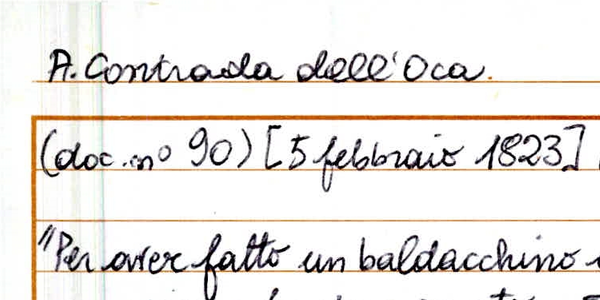 A. Contrada dell'Oca.
(doc. nº 90) [5 febbraio 1823]
"Per aver fatto un baldacchino